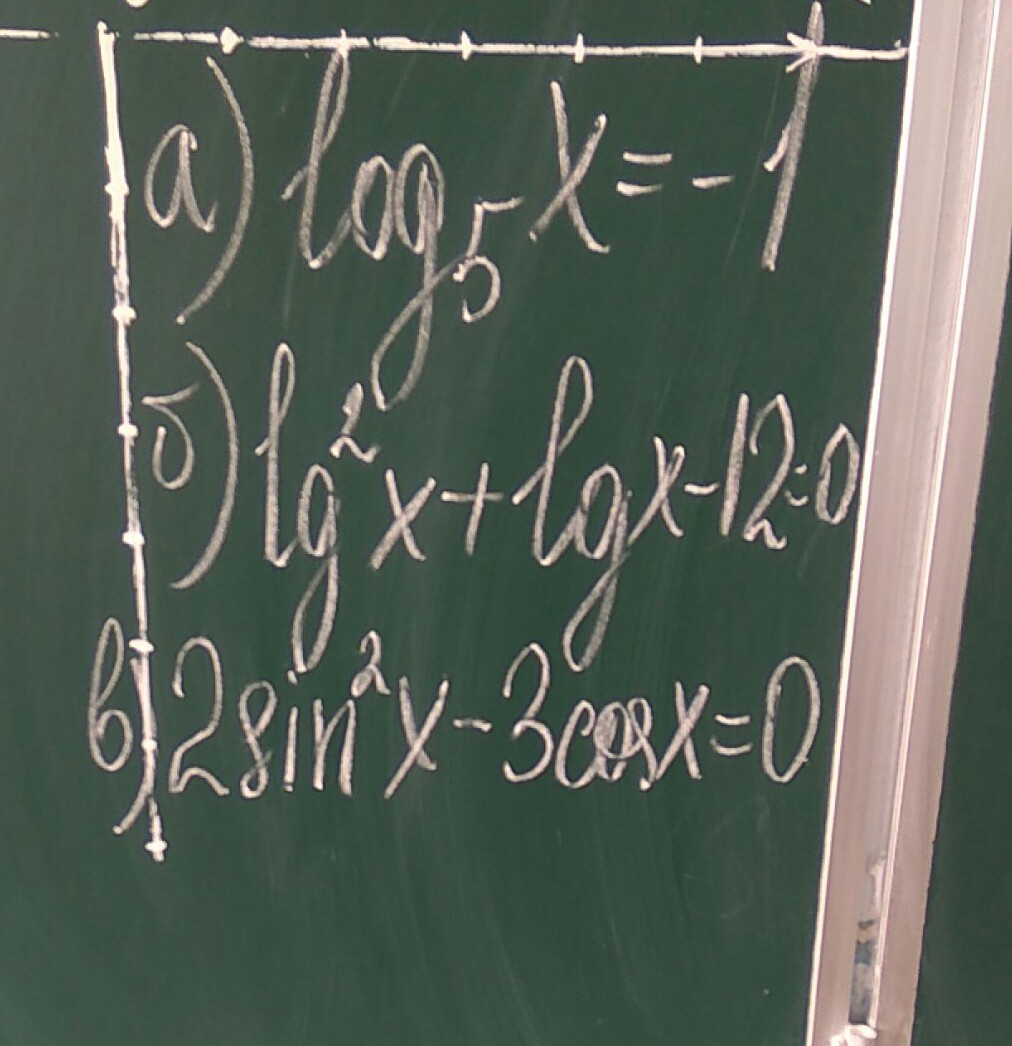 а) log₅ x = -1
б) lg² x + lg x - 12 = 0
в) 2 sin² x - 3 cos x = 0